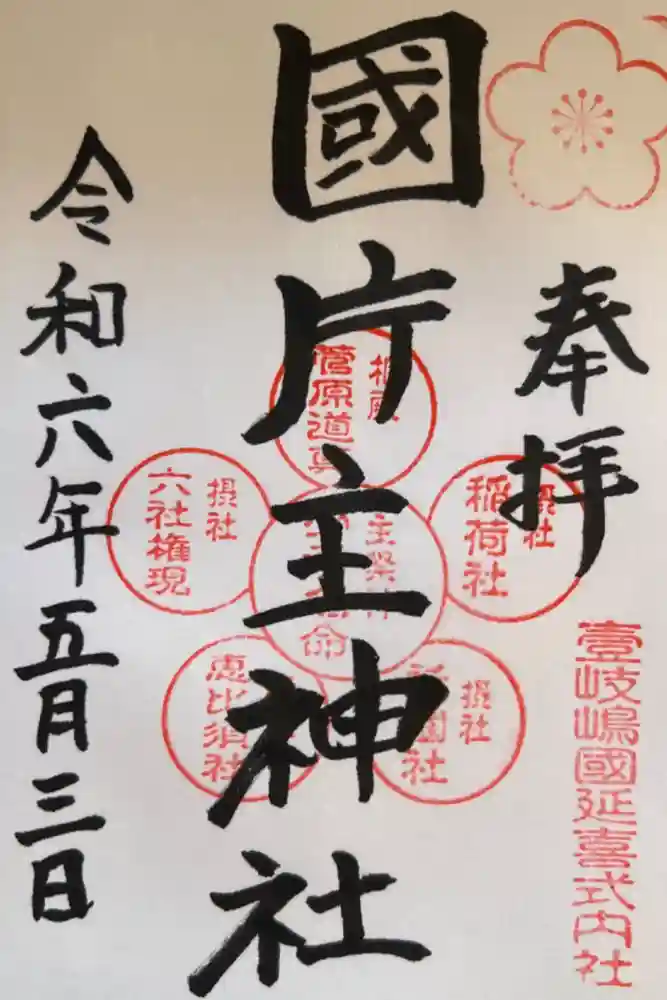 奉拝
壹岐嶋國延喜式内社
國片主神社
相殿
菅原道真
摂社
稲荷社
主祭神
命
摂社
六社権現
摂社
祇園社
恵比須社
令和六年五月三日